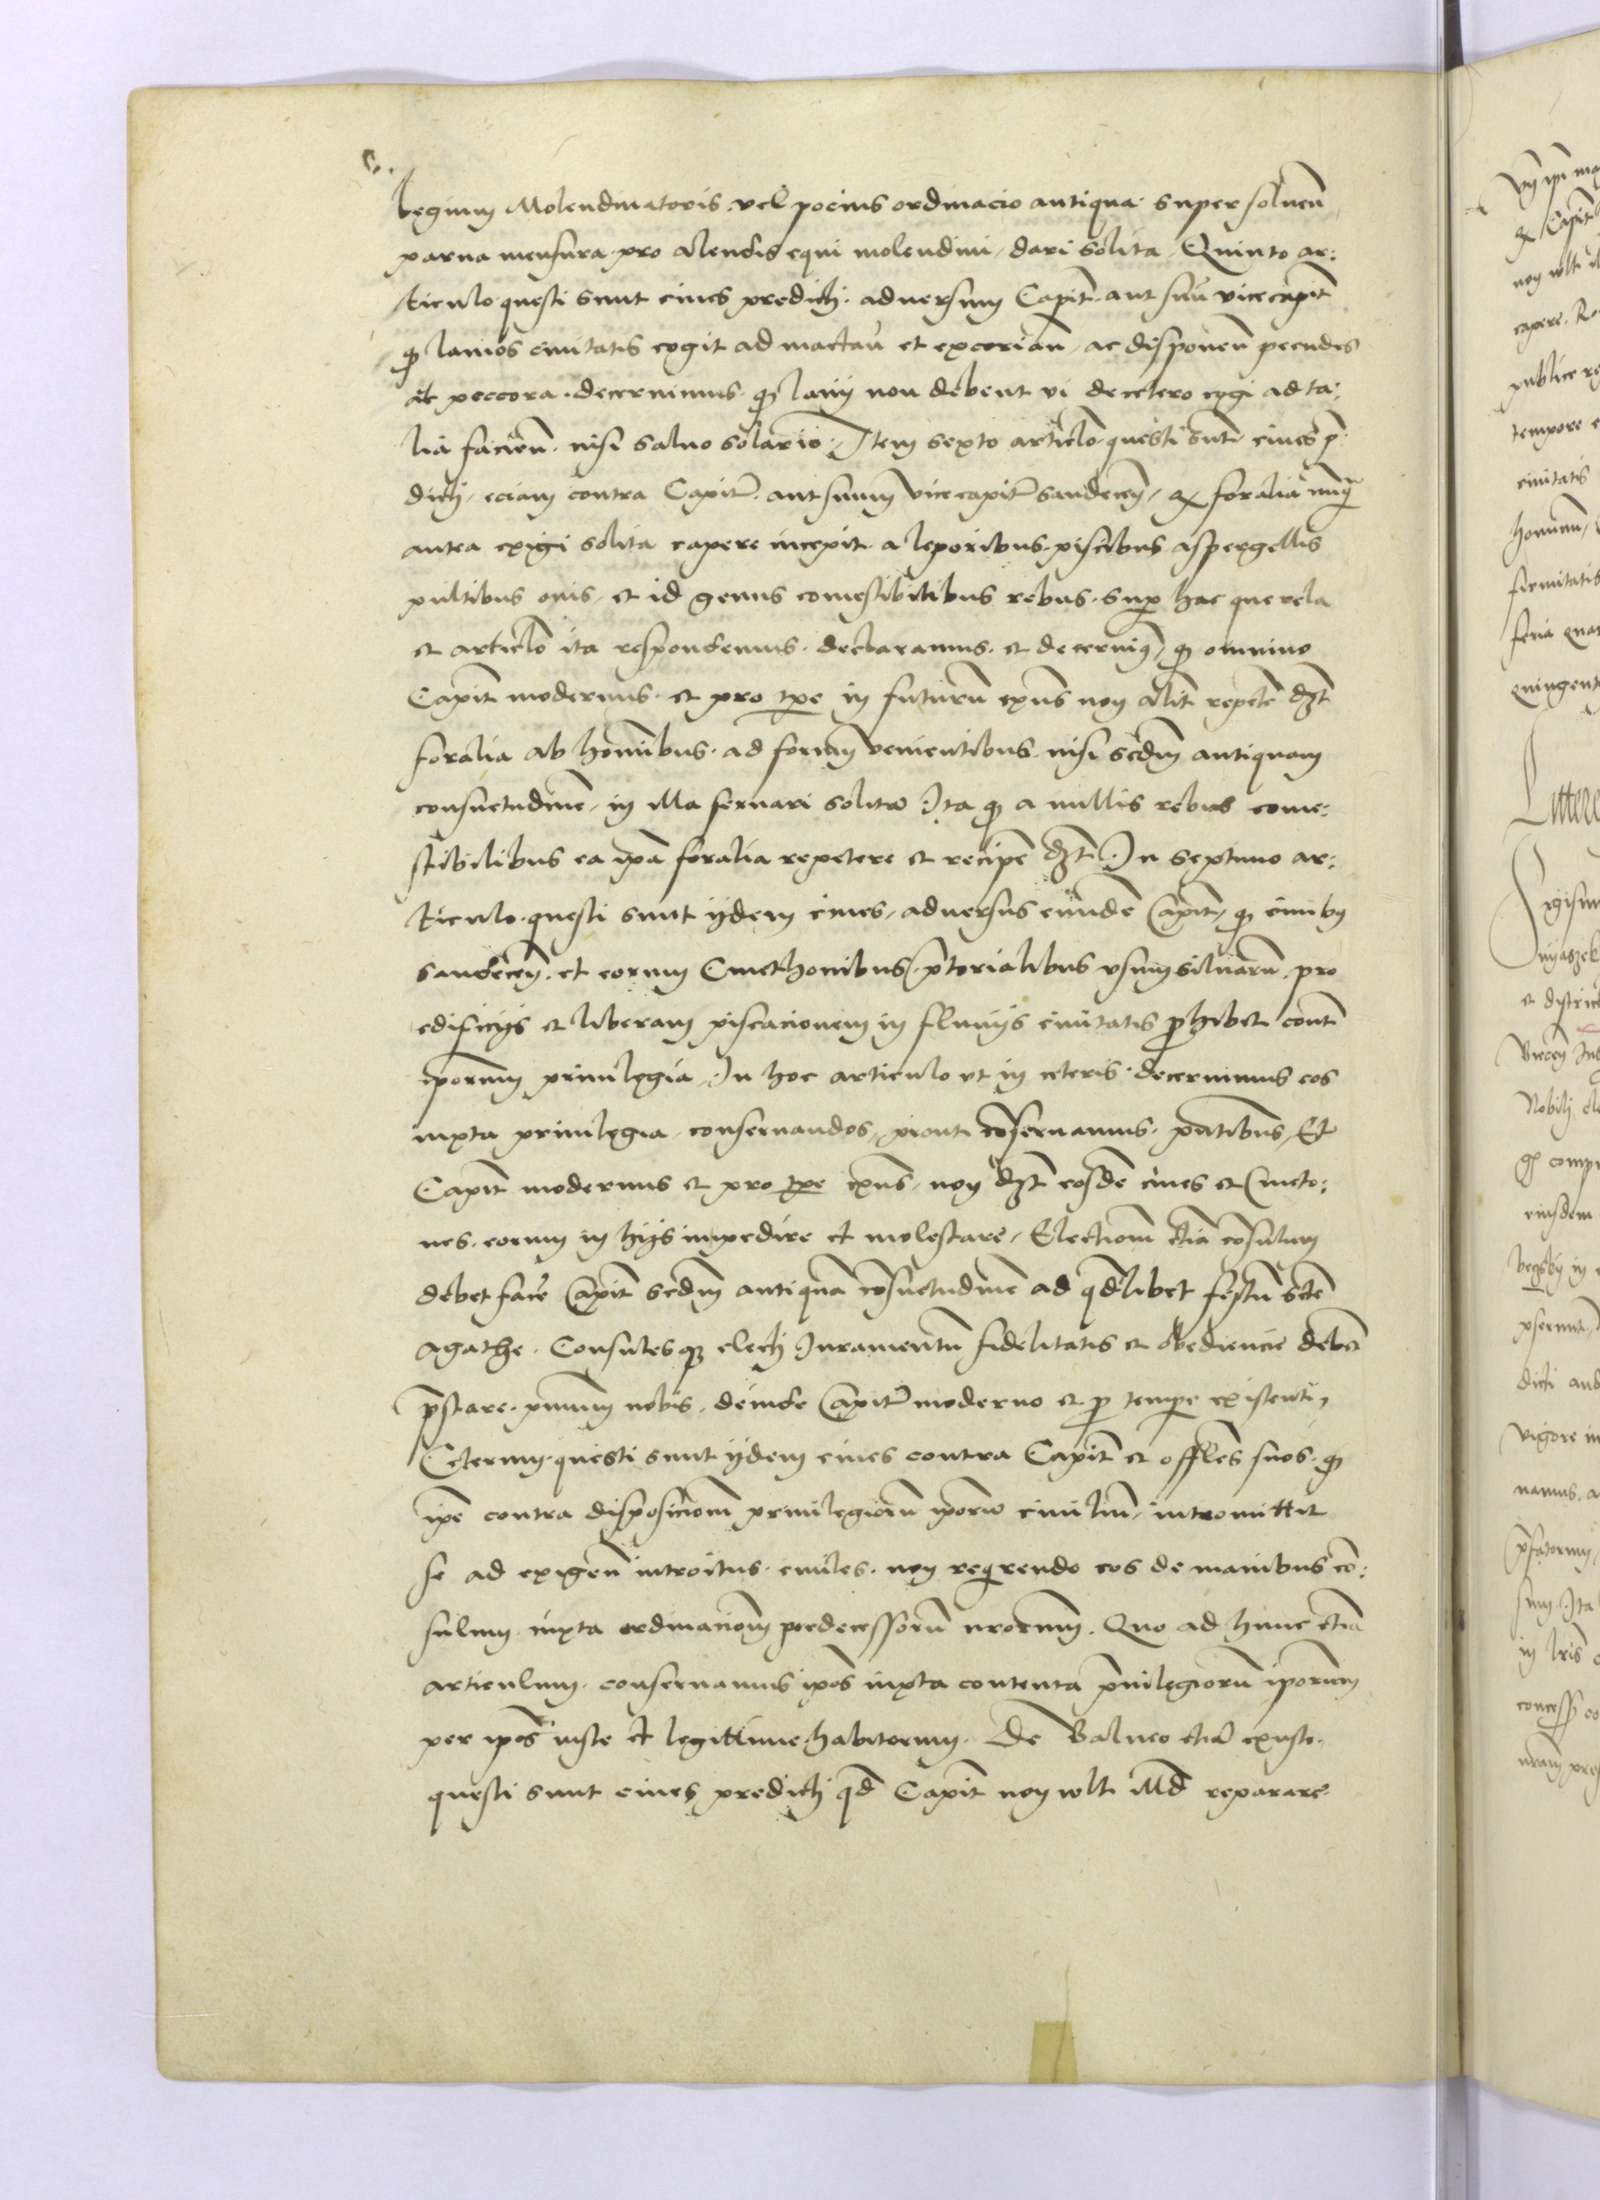 legium Molendinatoris vel pocius ordinacio antiqua super soluen̄
parua mensura pro alendis equi molendini, dari solita. Quinto ar:
ticulo questi sunt ciues predicti aduersum Capit̄ aut suū vicecapit̄
q̄ lanios ciuitatis cogit ad mactan̄ et excorian̄, ac disponen̄ pecudes
et peccora. decernimus q̄ lanij non debent vi de cetero cogi ad ta:
lia facien̄. nisi saluo solario. Item sexto articlo questi sunt ciues p̄
dicti, eciam contra Capit̄ aut suum vicecapit̄ sandecen̄, q̄ foralia nunq̄
antea exigi solita capere incepit a leporibus piscibus aspergellis
pultibus ouis, et id genus comestibilibus rebus. Sup̄ hac querela
et articlo ita respondemus. declaramus. et decernim9 q̄ omnino
Capit̄ modernus et pro tpe in futurū exn̄s non alit̄ repete dz̄t
foralia ab hominibus ad forum venientibus nisi scdm antiquam
consuetudinē, in illa seruari solitā Ita q̄ a nullis rebus come:
stibilibus ea ip̄a foralia repetere et recipe dz̄t. In septimo ar:
ticulo questi sunt ijdem ciues, aduersus eundē Capit̄, q̄ ciuib9
sandecen̄ et eorum Cmethonibus p̄torialibus vsum siluarū pro
edificijs et liberam piscacionem in fluuijs ciuitatis p̄hibet cont̄
ip̄orum priuilegia. In hoc articulo vt in ceteris decernimus eos
iuxta priuilegia conseruandos, prout cōseruamus p̄ntibus, Et
Capit̄ modernus et pro tpe exn̄s, non dz̄t eosdē ciues et Cmeto:
nes eorum in hijs impedire et molestare, Electionem etiā cōsulum
debet face Capit̄ scdm antiquā cōsuetudinē ad qdlibet festū scte
Agathe. Consules q̄ electi Iuramentū fidelitatis et obediencie debēt
p̄stare primum nobis, deinde Capit̄ moderno et p̄ tempe existenti,
Ceterum questi sunt ijdem ciues contra Capit̄ et offles suos q̄
ip̄e contra disposicionem priuilegiorū ip̄orū ciuiliū, intromittit
se ad exigen̄ introitus ciuiles non requirendo eos de manibus cō:
sulum iuxta ordinacionem predecessorū nrorum. Quo ad hunc etiā
articulum conseruamus ip̄os iuxta contenta p̄uilegiorū ip̄orum
per ip̄os iuste et legittime habitorum. De Balneo etiā exusto
questi sunt ciues predicti qd Capit̄ non wlt illd reparare